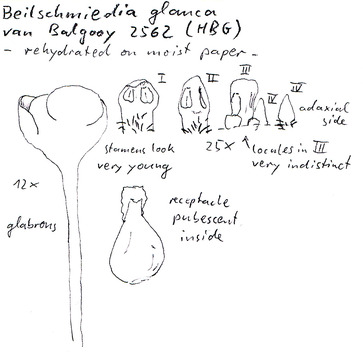 Beilschmiedia glauca
van Balgooy 2562 (HBG)
- rehydrated on moist paper -
I
II
III
IV
IV
adaxial
side
stamens look
very young
25x
locules in III
very indistinct
12x
glabrous
receptacle
pubescent
inside